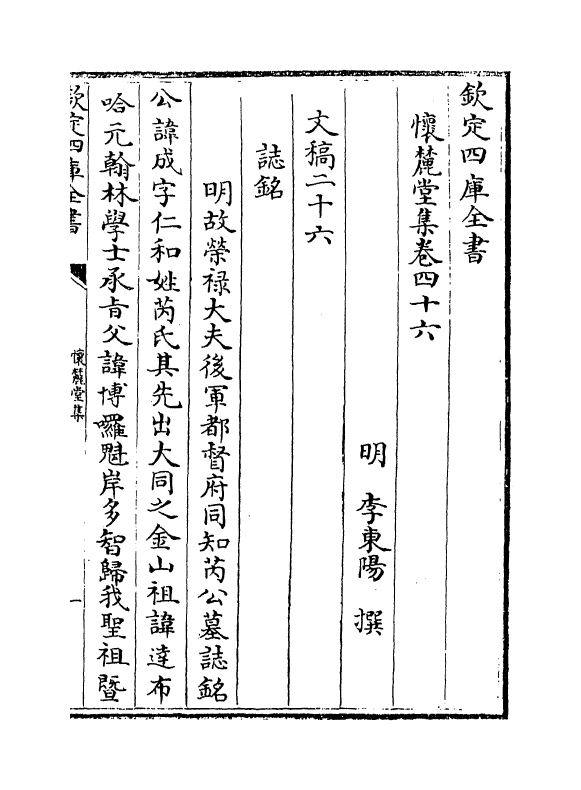 欽定四庫全書
懷麓堂集卷四十六
明　李東陽　撰
文稿二十六
誌銘
明故榮祿大夫後軍都督府同知芮公墓誌銘
公諱成字仁和姓芮氏其先出大同之金山祖諱達布
哈元翰林學士承旨父諱博囉魁岸多智歸我聖祖暨
欽定四庫全書
懷麓堂集
一